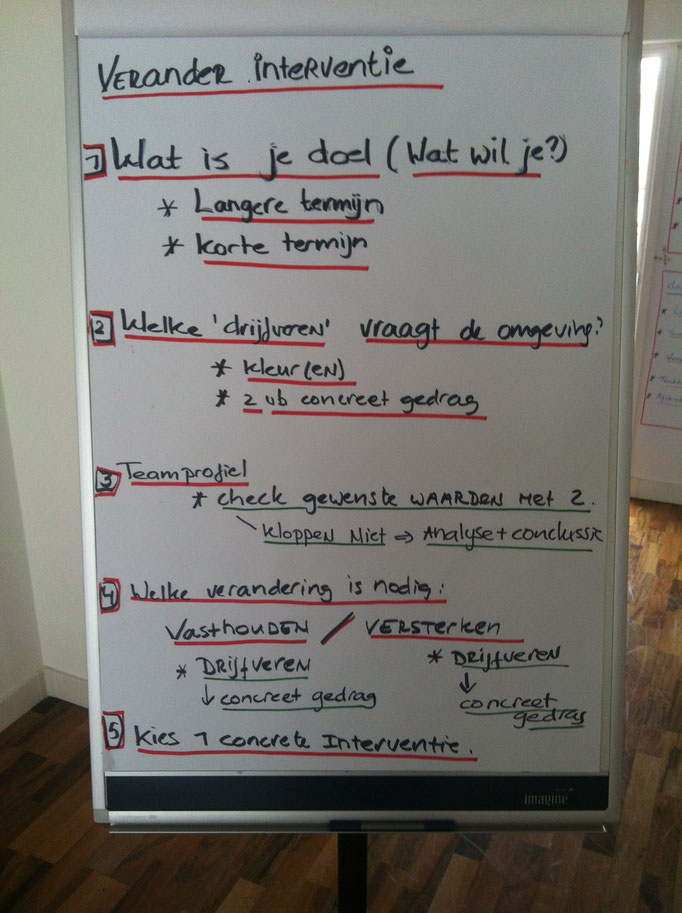 Verander interventie
1 Wat is je doel (Wat wil je?)
* Langere termijn
* korte termijn
2 Welke 'drijfveren' vraagt de omgeving?
* kleur(en)
* 2 vb concreet gedrag
3 Teamprofiel
* check gewenste waarden met 2.
kloppen niet ⇒ Analyse + conclussie
4 Welke verandering is nodig:
Vasthouden / Versterken
* Drijfveren * Drijfveren
↓ concreet gedrag ↓ concreet gedrag
5 Kies 1 concrete Interventie.
imagine